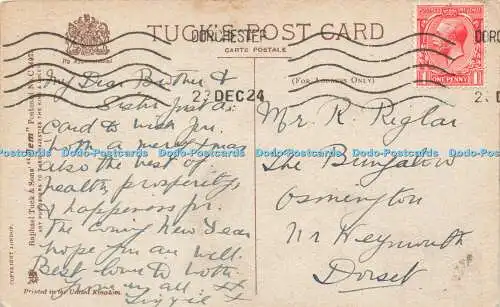 TUCK'S POST CARD
CARTE POSTALE
By Appointment
(FOR ADDRESS ONLY)
DORCHESTER
DEC 24
POSTAGE
ONE PENNY
My Dear Brother &
Sister Just a
Card to wish you
both a merry Xmas
also the best of
health, prosperity
& happeness for
The Coming New Year
hope you are well.
Best love to both
from us all xx
Mr. R. Riglar
The Bungalow
Osmington
Nr Weymouth
Dorset
Raphael Tuck & Sons' "Gem" Postcard
ART PUBLISHERS TO THEIR MAJESTIES THE KING &
COPYRIGHT LONDON.
Printed in the United Kingdom.
Dodo-Postcards Dodo-Postcards Dodo-Postcards Dodo-Postcards Dodo-Postcards